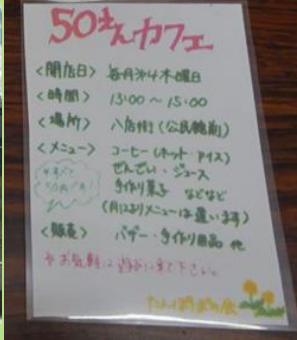 50えんカフェ
<開店日> 毎月第4木曜日
<時間> 13:00～15:00
<場所> 八店街(公民館前)
<メニュー> コーヒー(ホット・アイス)
ぜんざい・ジュース
手作り菓子 などなど
(月によりメニューは違います)
すべて
50円!
<販売> バザー・手作り用品 他
お気軽に遊びに来て下さい。
たんぽぽの会